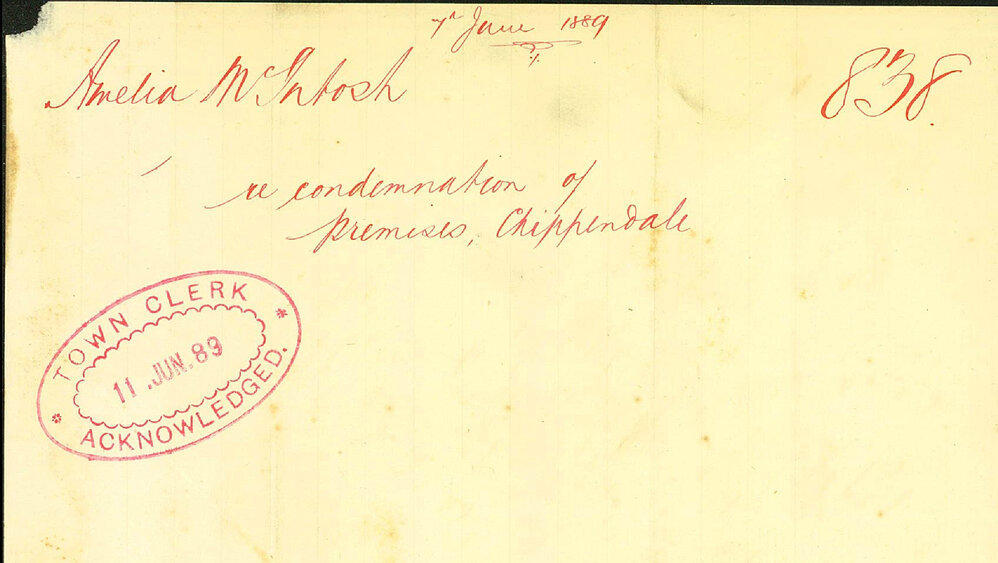 7th June 1889
Amelia McIntosh
838.
re condemnation of
premises, Chippendale
TOWN CLERK
11 .JUN.89
ACKNOWLEDGED.